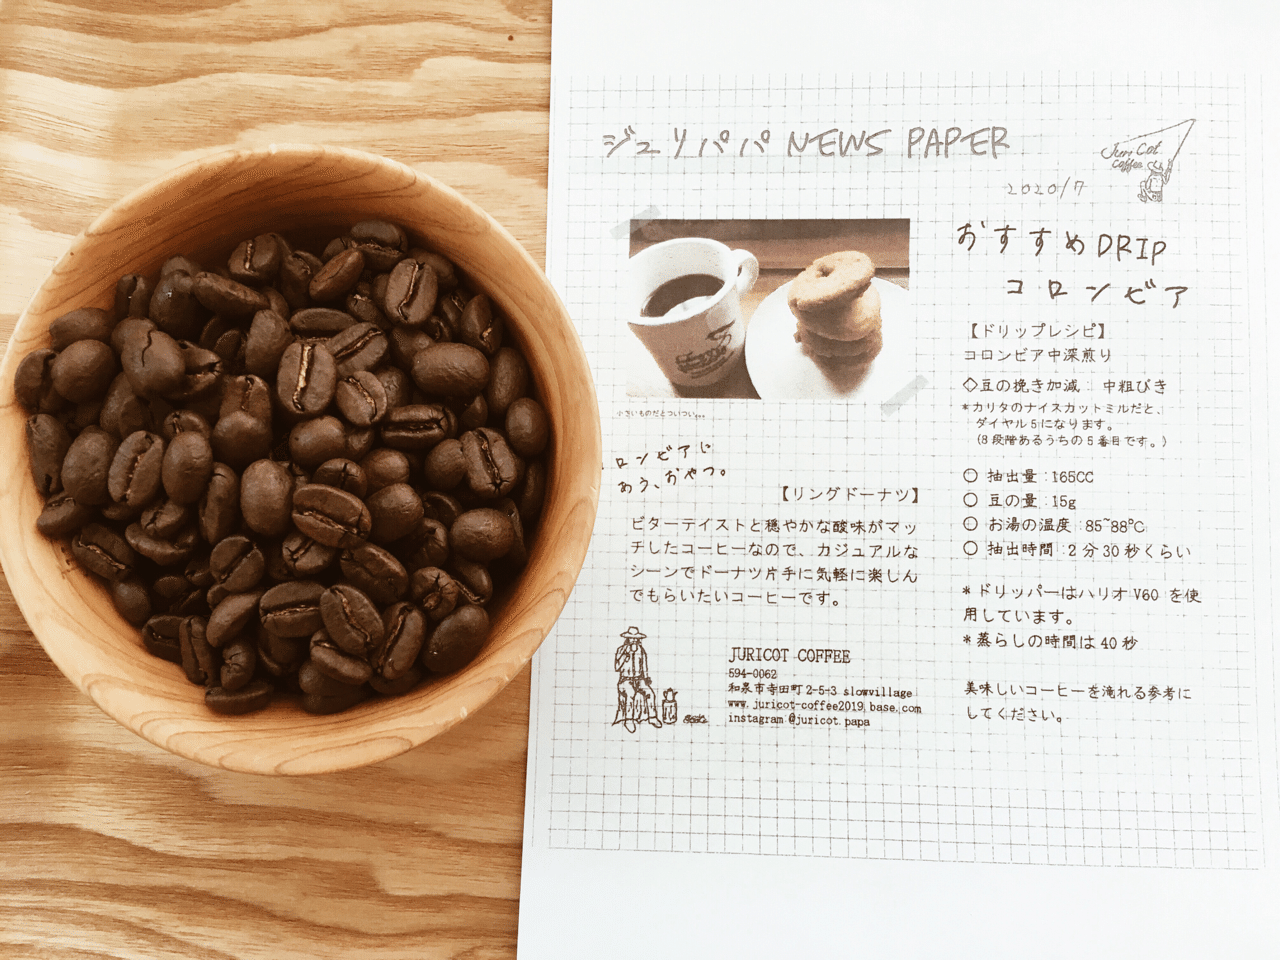 ジュリパパ NEWS PAPER
Juri Cot
Coffee
2020/7
おすすめDRIP
コロンビア
【ドリップレシピ】
コロンビア中深煎り
◇豆の挽き加減： 中粗びき
*カリタのナイスカットミルだと、
ダイヤル5になります。
(8段階あるうちの5番目です。)
○ 抽出量：165CC
○ 豆の量：15g
○ お湯の温度：85~88℃
○ 抽出時間：2分30秒くらい
*ドリッパーはハリオV60 を使
用しています。
*蒸らしの時間は40秒
美味しいコーヒーを淹れる参考に
してください。
小さいものだとついつい。。。
ロンビアに
あう、おやつ。
【リングドーナツ】
ビターテイストと穏やかな酸味がマッ
チしたコーヒーなので、カジュアルな
シーンでドーナツ片手に気軽に楽しん
でもらいたいコーヒーです。
JURICOT COFFEE
594-0062
和泉市寺田町2-5-3 slowvillage
www.juricot-coffee2019.base.com
instagram:@juricot.papa